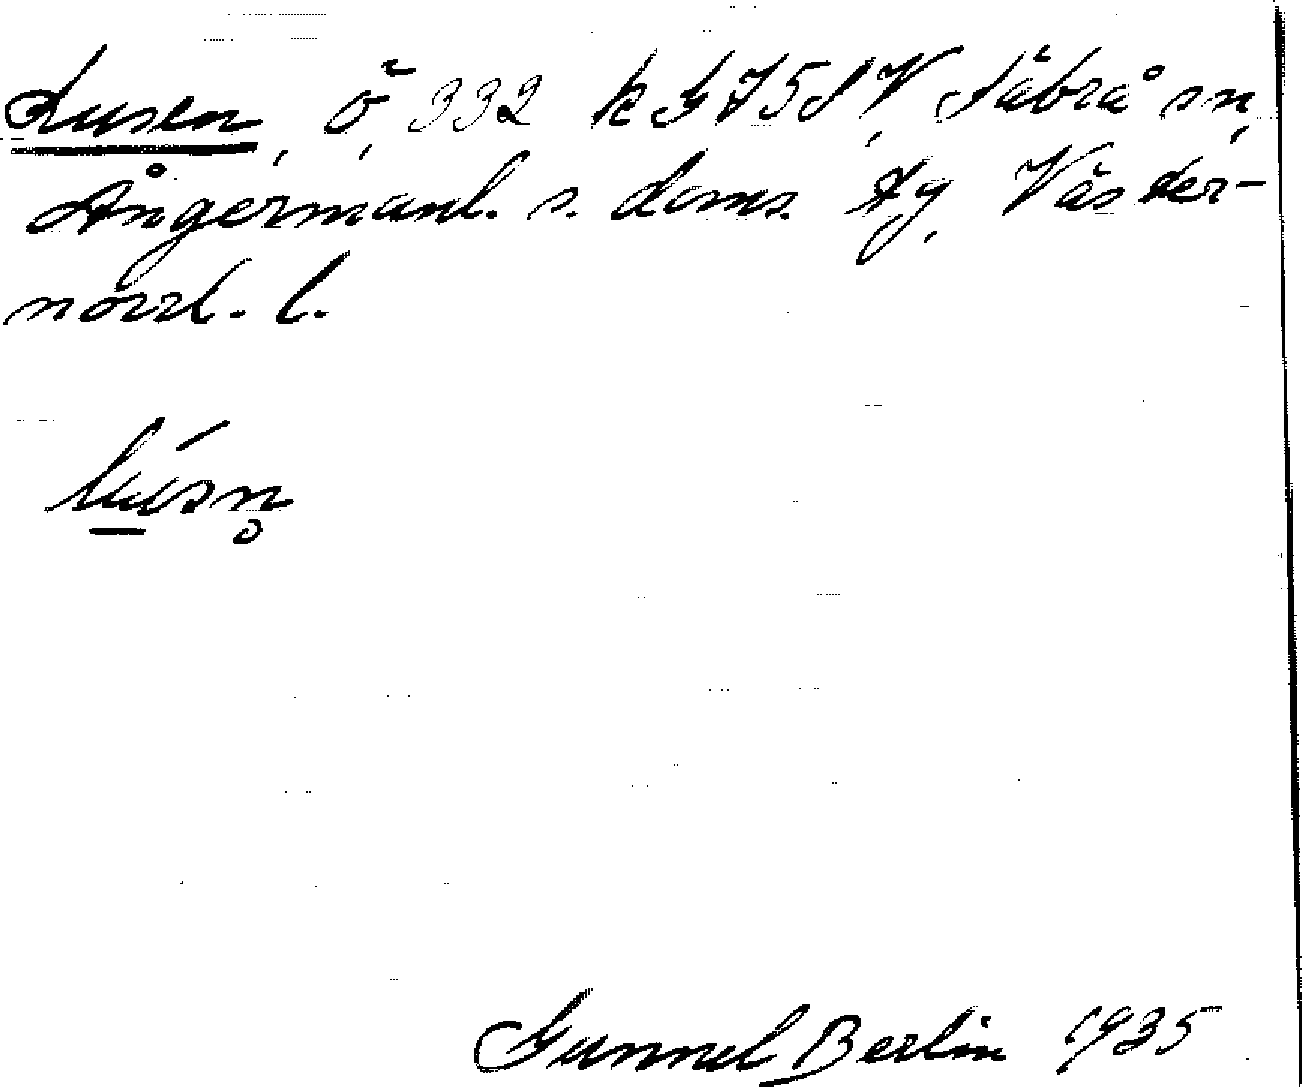 Lusen, ö, 332 k G 75 d V, Säbrå sn,
Ångermanl. s. doms. tg, Väster-
norrl. l.
lúsn̥
Gunnel Berlin 1935